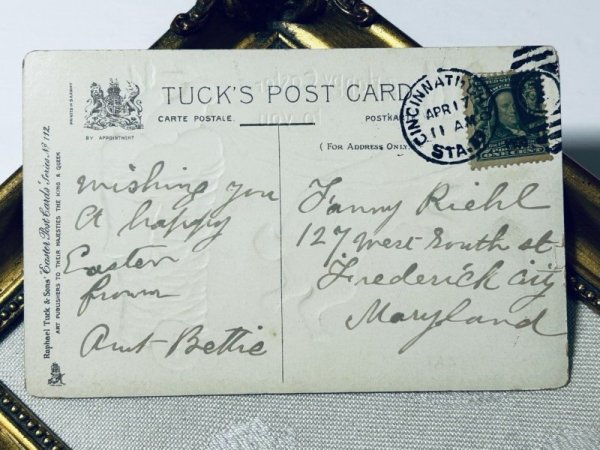 PRINTED IN SAXONY
BY APPOINTMENT
TUCK'S POST CARD
CARTE POSTALE.
POSTKAR
(FOR ADDRESS ONLY
CINCINNATI
APR 17
11 AM
STA.
Raphael Tuck & Sons' "Easter Post Cards" Series. No 112.
ART PUBLISHERS TO THEIR MAJESTIES THE KING & QUEEN
wishing you
A happy
Easter
from
Aunt Bettie
Fanny Riehl
127 west South st
Frederick City
Maryland